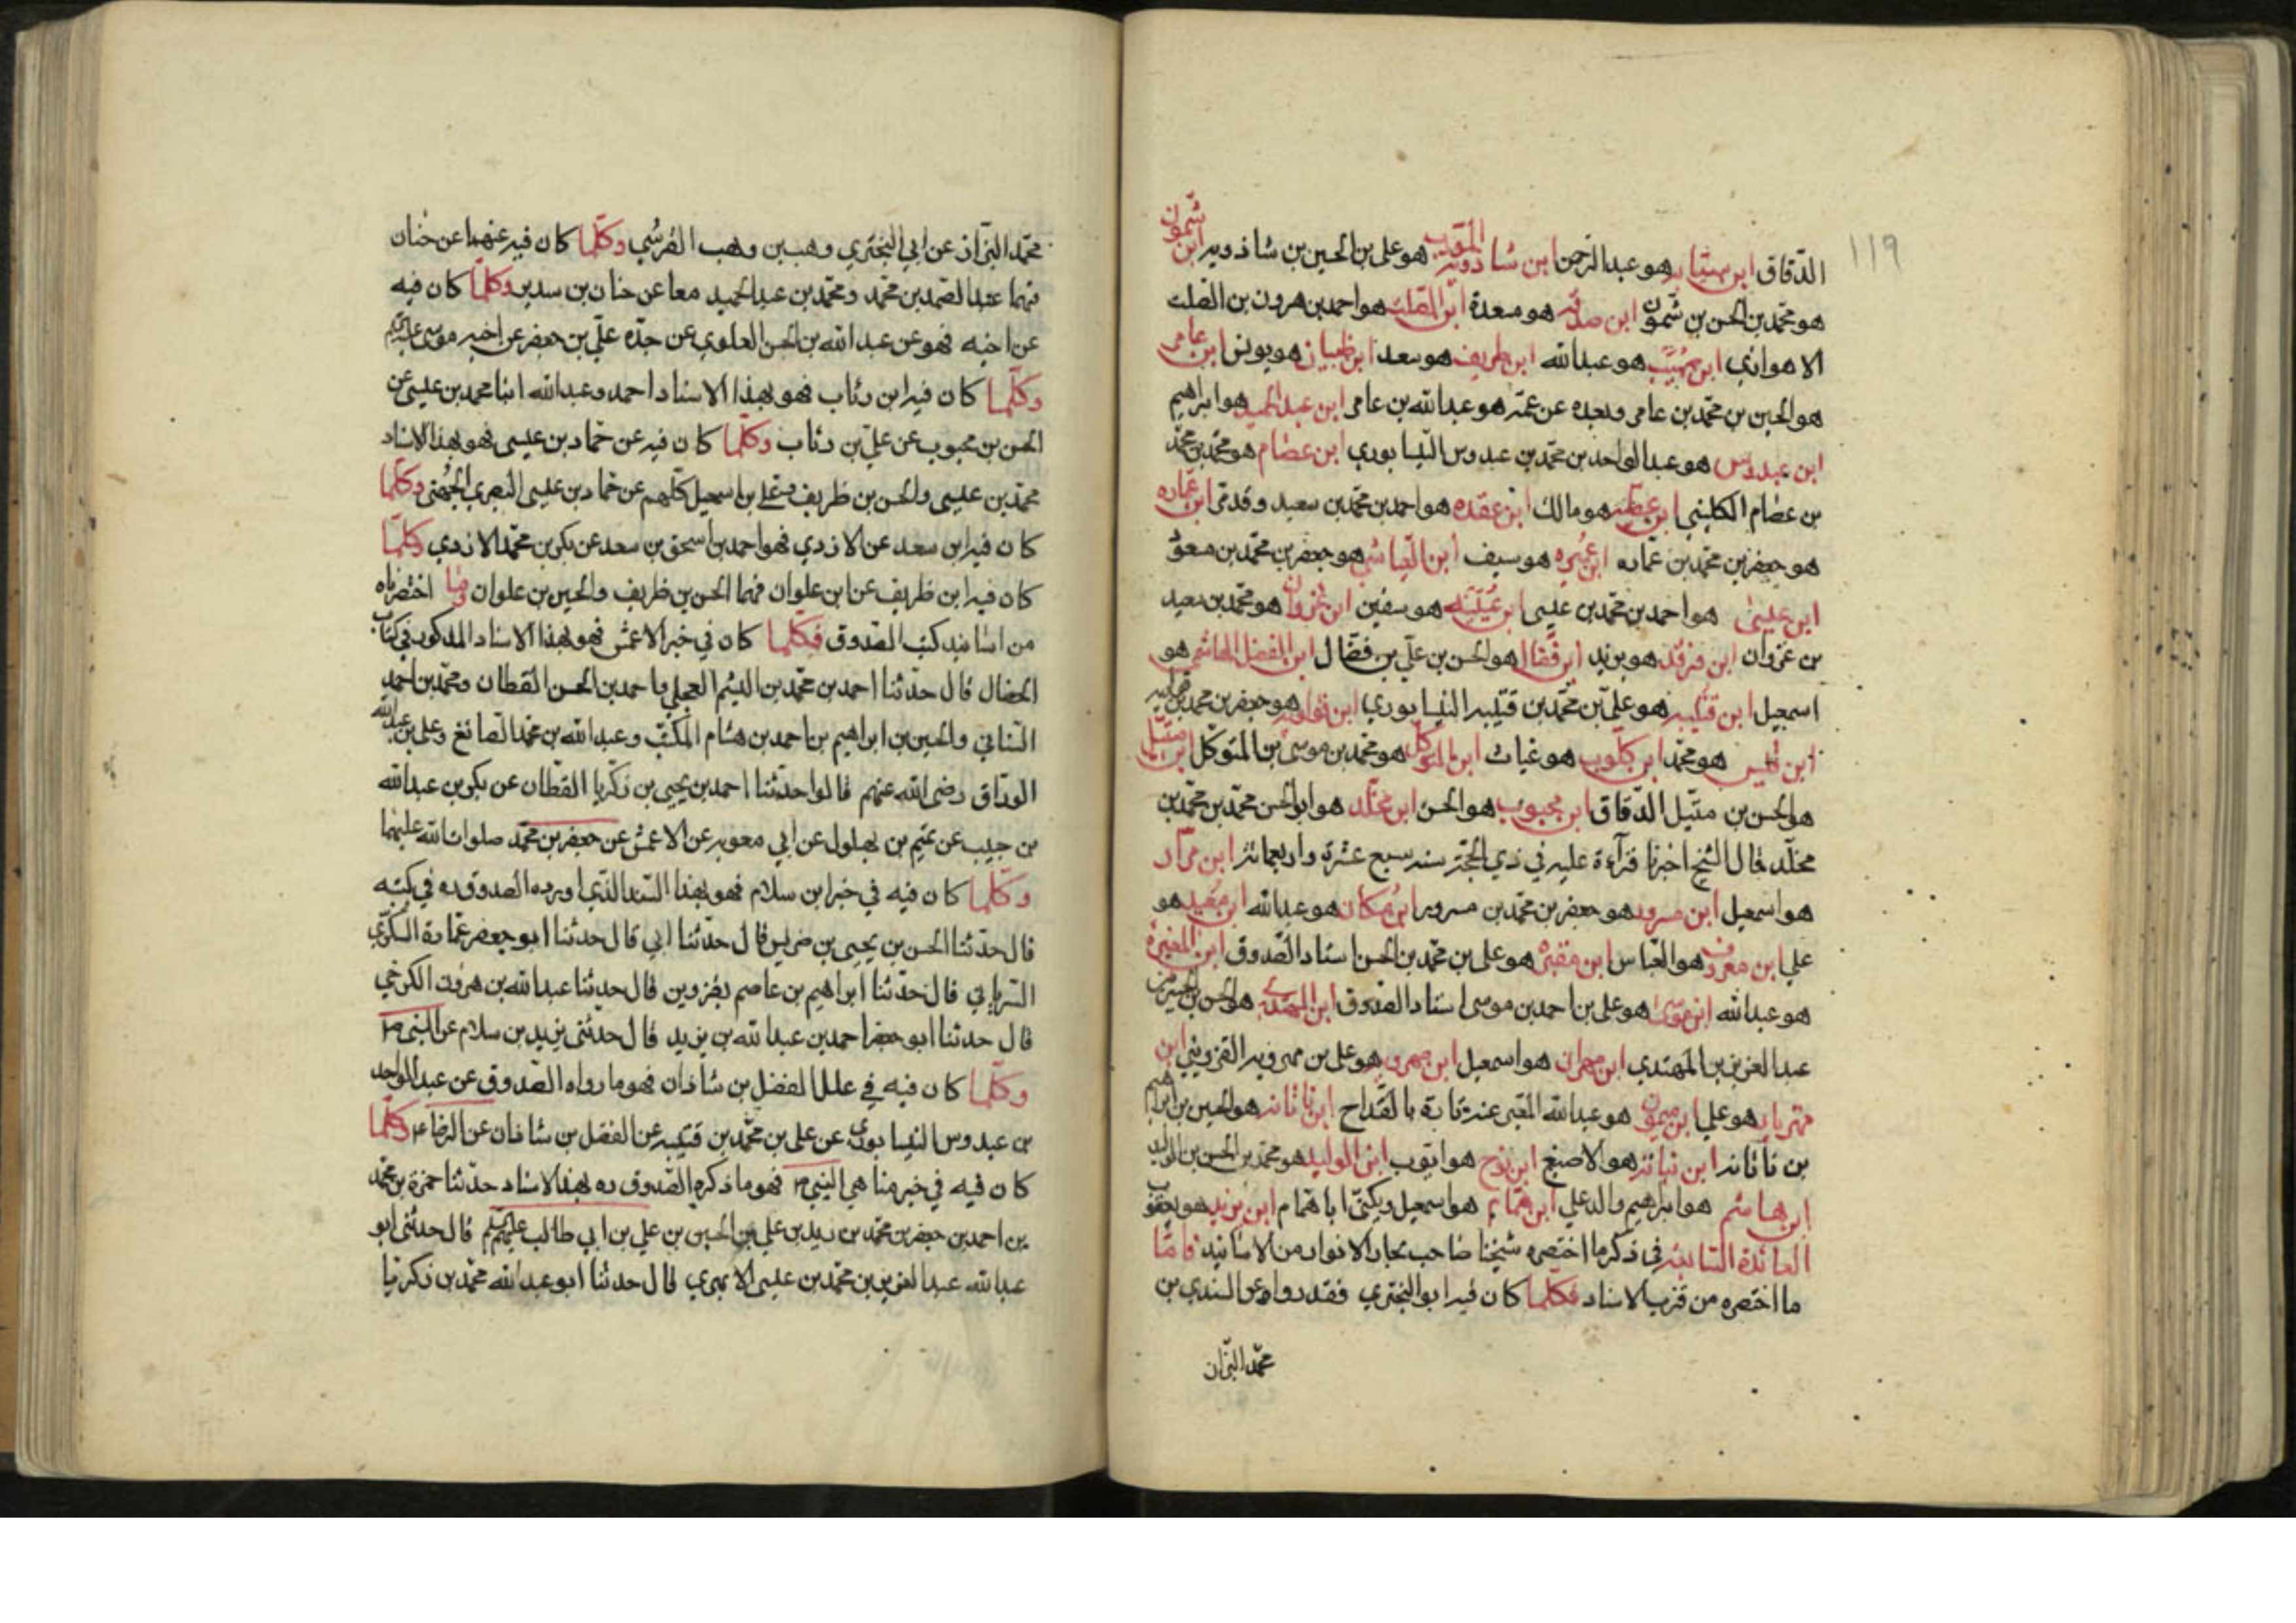 ١١٩
الدقاق ابن سيابه هو عبد الرحمن ابن شاذويه المؤدب هو علي بن الحسين بن شاذويه ابن شمون
هو محمد بن الحسن بن شمون ابن صدقه هو مسعدة ابن الصلت هو احمد بن هرون بن الصلت
الاهوازي ابن هو عبد الله ابن طريف هو سعد ابن ظبيان هو يونس ابن عامر
هو الحسين بن محمد بن عامر وبعده عن عمه هو عبد الله بن عامر ابن عبد الحميد هو ابراهيم
ابن عبدوس هو عبد الواحد بن محمد بن عبدوس النيسابوري ابن عصام هو محمد بن محمد
بن عصام الكليني ابن عطيه هو مالك ابن عقده هو احمد بن محمد بن سعيد وقد مر ابن عماره
هو جعفر بن محمد بن عماره ابن عميره هو سيف ابن العياشي هو جعفر بن محمد بن مسعود
ابن عيسى هو احمد بن محمد بن عيسى ابن عيينه هو سفين ابن غزوان هو محمد بن سعيد
بن غزوان ابن فرقد هو يزيد ابن فضال هو الحسن بن علي بن فضال ابن الفضل الهاشمي هو
اسمعيل ابن قتيبه هو علي بن محمد بن قتيبه النيسابوري ابن قولويه هو جعفر بن محمد بن قولويه
ابن قيس هو محمد ابن كلوب هو غياث ابن المتوكل هو محمد بن موسى بن المتوكل ابن متيل
هو الحسن بن متيل الدقاق ابن محبوب هو الحسن ابن مخلد هو ابو الحسن محمد بن محمد بن
مخلد قال الشيخ اخبرنا قرآءة عليه في ذي الحجة سنه سبع عشرة واربعمائه ابن مرار
هو اسمعيل ابن مسرور هو جعفر بن محمد بن مسرور ابن مسكان هو عبد الله ابن معبد هو
علي ابن معروف هو العباس ابن مقبره هو علي بن محمد بن الحسن استاد الصدوق ابن المغيرة
هو عبد الله ابن موسى هو علي بن احمد بن موسى استاد الصدوق ابن المهتدي هو الحسن بن الحسين بن
عبد العزيز بن المهتدي ابن مهران هو اسمعيل ابن مهرويه هو علي بن مهرويه القزويني ابن
مهزيار هو علي ابن ميمون هو عبد الله المعبر عنه تارة بالقداح ابن ناتانه هو الحسين بن ابراهيم
بن ناتانه ابن نباته هو الاصبغ ابن نوح هو ايوب ابن الوليد هو محمد بن الحسن بن الوليد
ابن هاشم هو ابراهيم والد علي ابن همام هو اسمعيل ويكنى ابا همام ابن يزيد هو يعقوب
الفائدة السابعه في ذكر ما اختصره شيخنا صاحب بحار الانوار من الاسانيد فامّا
ما اختصره من قرب الاسناد فكلما كان فيه ابو البختري فقد رواه عن السندي بن
محمد البزّاز
محمد البزّاز عن ابي البختري وهب بن وهب القرشي وكلما كان فيه عنهما عن حنان
فهما عبد الصمد بن محمد ومحمد بن عبد الحميد معا عن حنان بن سدير وكلما كان فيه
عن اخيه فهو عن عبد الله بن الحسن العلوي عن جده علي بن جعفر عن اخيه موسى عليه السلم
وكلما كان فيه ابن رئاب فهو بهذا الاسناد احمد وعبد الله ابنا محمد بن عيسى عن
الحسن بن محبوب عن علي بن رئاب وكلما كان فيه عن حماد بن عيسى فهو بهذا الاسناد
محمد بن عيسى والحسن بن ظريف وعلي بن اسمعيل كلهم عن حماد بن عيسى البصري الجهني وكلما
كان فيه ابن سعد عن الازدي فهو احمد بن اسحق بن سعد عن بكر بن محمد الازدي وكلما
كان فيه ابن ظريف عن ابن علوان فهما الحسن بن ظريف والحسين بن علوان وما اختصرناه
من اسانيد كتب الصدوق فكلما كان في خبر الاعمش فهو بهذا الاسناد المذكور في كتاب
الخصال قال حدثنا احمد بن محمد بن الهيثم العجلي واحمد بن الحسن القطان ومحمد بن احمد
السناني والحسين بن ابراهيم بن احمد بن هشام المكتب وعبد الله بن محمد الصائغ وعلي بن عبد الله
الوراق رضي الله عنهم قالوا حدثنا احمد بن يحيى بن زكريا القطان عن بكر بن عبد الله
بن حبيب عن تميم بن بهلول عن ابي معويه عن الاعمش عن جعفر بن محمد صلوات الله عليهما
وكلما كان فيه في خبر ابن سلام فهو بهذا السند الذي اورده الصدوق ره في كتبه
قال حدثنا الحسن بن يحيى بن ضريس قال حدثنا ابي قال حدثنا ابو جعفر عمارة السكري
السرياني قال حدثنا ابراهيم بن عاصم بقزوين قال حدثنا عبد الله بن هرون الكرخي
قال حدثنا ابو جعفر احمد بن عبد الله بن يزيد قال حدثني يزيد بن سلام عن النبي ص
وكلما كان فيه في علل الفضل بن شاذان فهو ما رواه الصدوق عن عبد الواحد
بن عبدوس النيسابوري عن علي بن محمد بن قتيبه عن الفضل بن شاذان عن الرضا ع وكلما
كان فيه في خبر مناهي النبي ص فهو ما ذكره الصدوق ره بهذا الاسناد حدثنا حمزة بن محمد
بن احمد بن جعفر بن محمد بن زيد بن علي بن الحسين بن علي بن ابي طالب عليهم السلم قال حدثني ابو
عبد الله عبد العزيز بن محمد بن عيسى الابهري قال حدثنا ابو عبد الله محمد بن زكريا